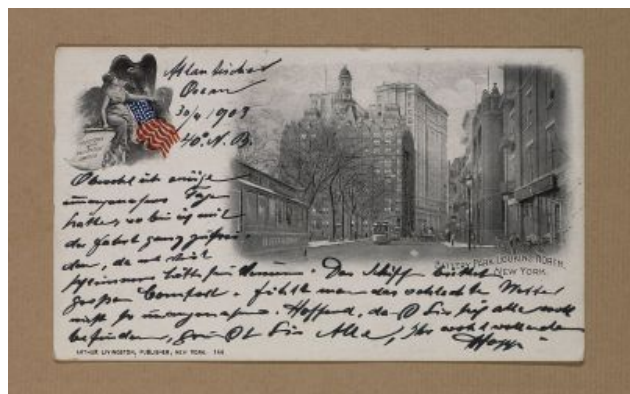 Atlantischer
Ocean
30/4 1903
40° N. B.
Obwohl ich einige
unangenehme Tage
hatte, so bin ich mit
der Fahrt ganz zufrie-
den, da es viel
schlimmer hätte sein können. Das Schiff bietet
großen Comfort. fühlt man das schlechte Wetter
nicht so unangenehm. Hoffend, daß Sie sich alle wohl
befinden, grüßt Sie Alle, Ihr wohlwollender
BATTERY PARK LOOKING NORTH,
NEW YORK.
ARTHUR LIVINGSTON, PUBLISHER, NEW YORK. 144